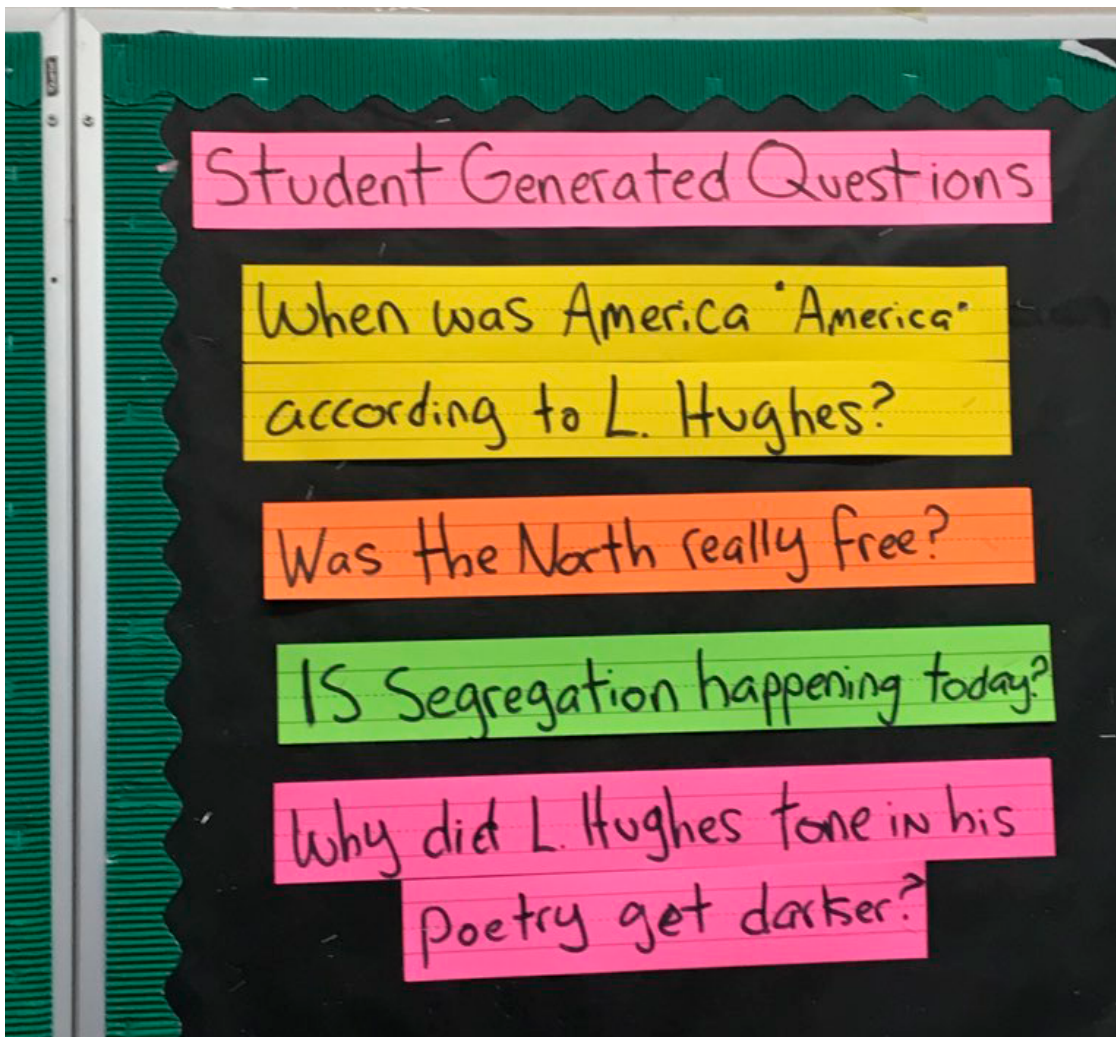 Student Generated Questions
When was America "America"
according to L. Hughes?
Was the North really free?
IS Segregation happening today?
Why did L. Hughes tone in his
poetry get darker?